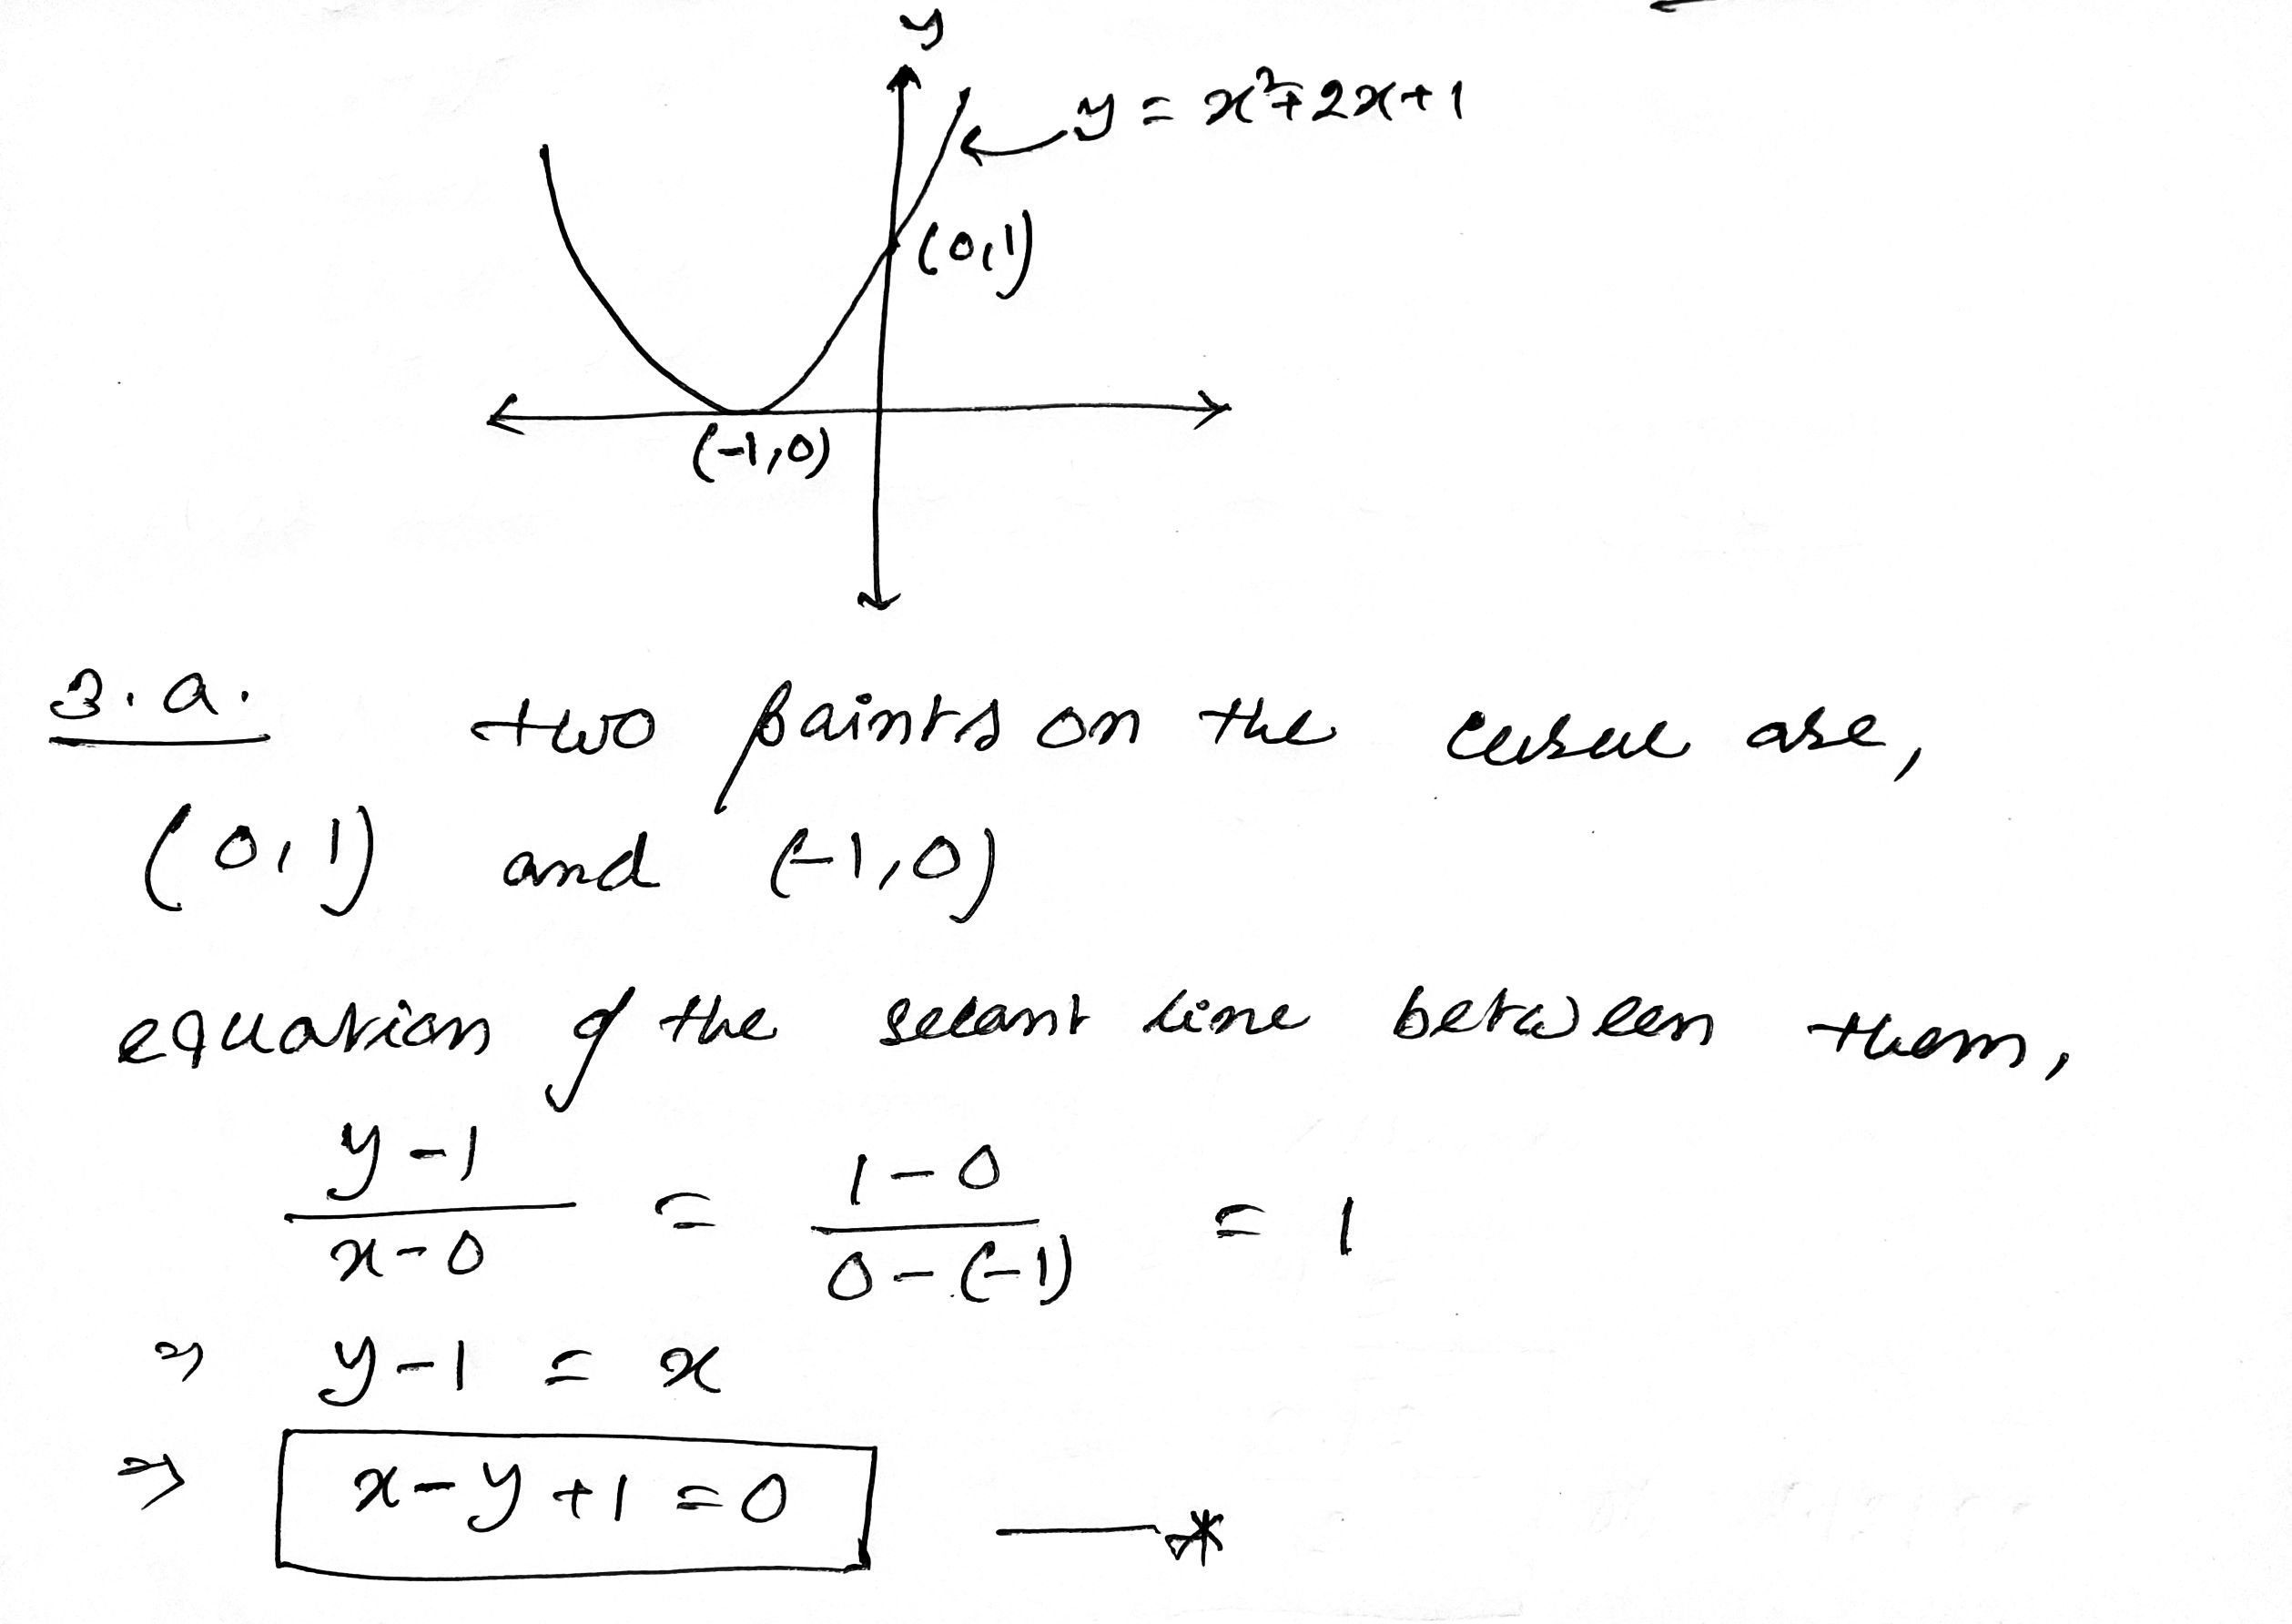 y
y = x²+2x+1
(0,1)
(-1,0)
3.a. two points on the curve are,
(0,1) and (-1,0)
equation of the secant line between them,
(y-1)/(x-0) = (1-0)/(0-(-1)) = 1
⇒ y-1 = x
⇒ x-y+1=0 —*